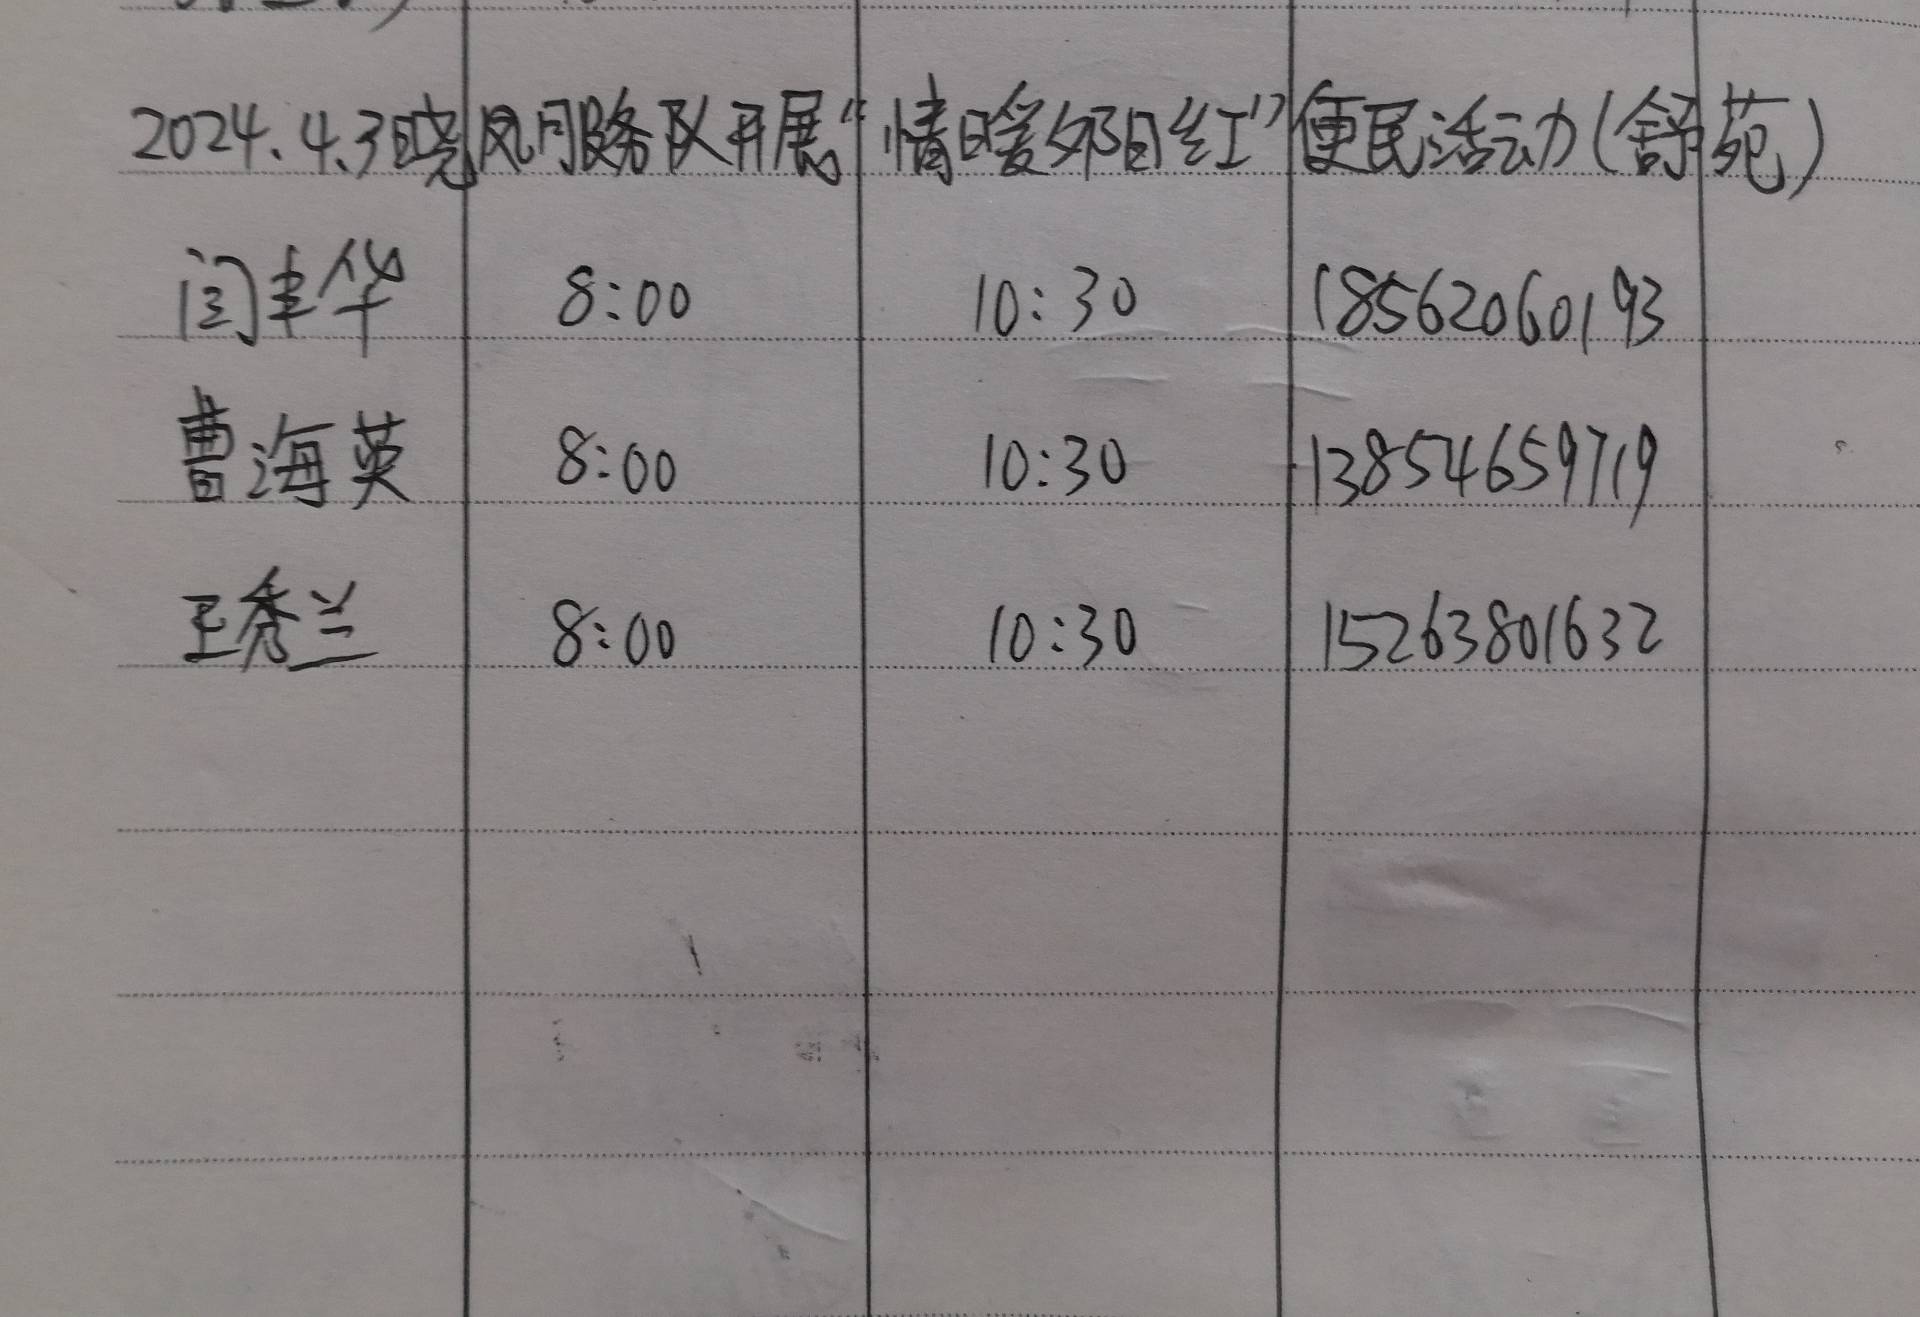 2024.4.3晓凤服务队开展“情暖夕阳红”便民活动(舒苑)
闫丰华 8:00 10:30 18562060193
曹海英 8:00 10:30 13854659719
王秀兰 8:00 10:30 15263801632